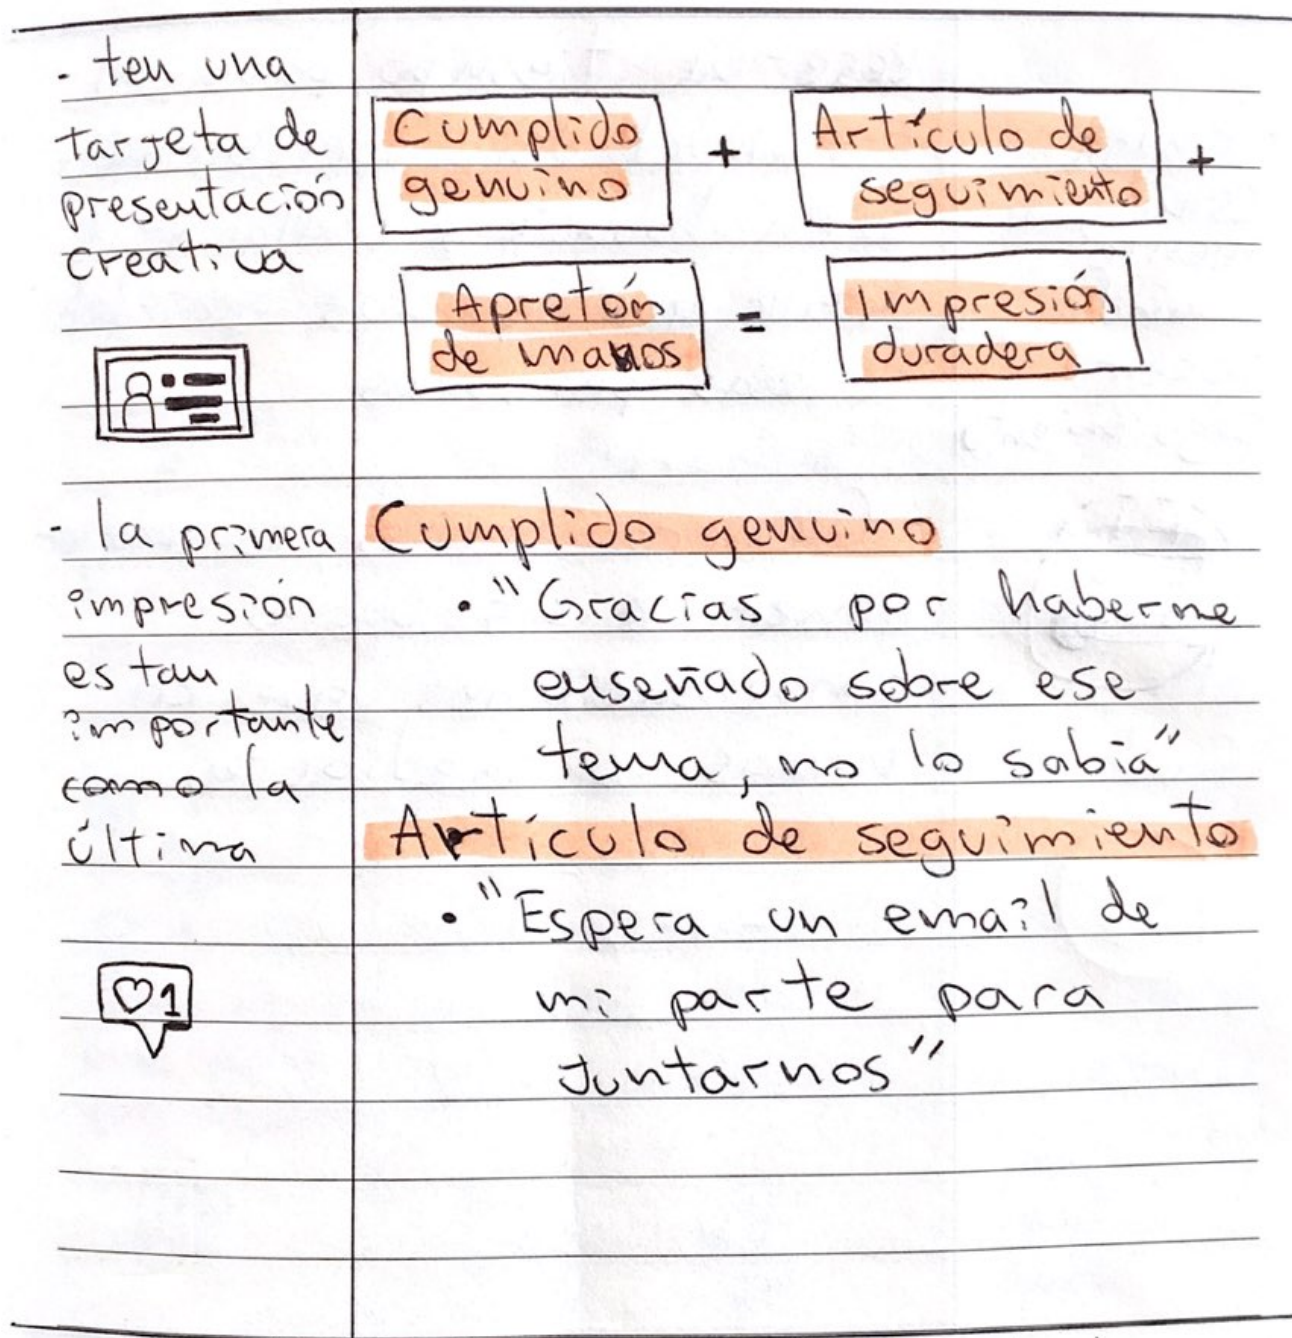 - ten una
tarjeta de
presentación
creativa
- la primera
impresión
es tan
importante
como la
última
1
Cumplido
genuino
+
Artículo de
seguimiento
+
Apretón
de manos
=
Impresión
duradera
Cumplido genuino
• "Gracias por haberme
enseñado sobre ese
tema, no lo sabía"
Artículo de seguimiento
• "Espera un email de
mi parte para
Juntarnos"